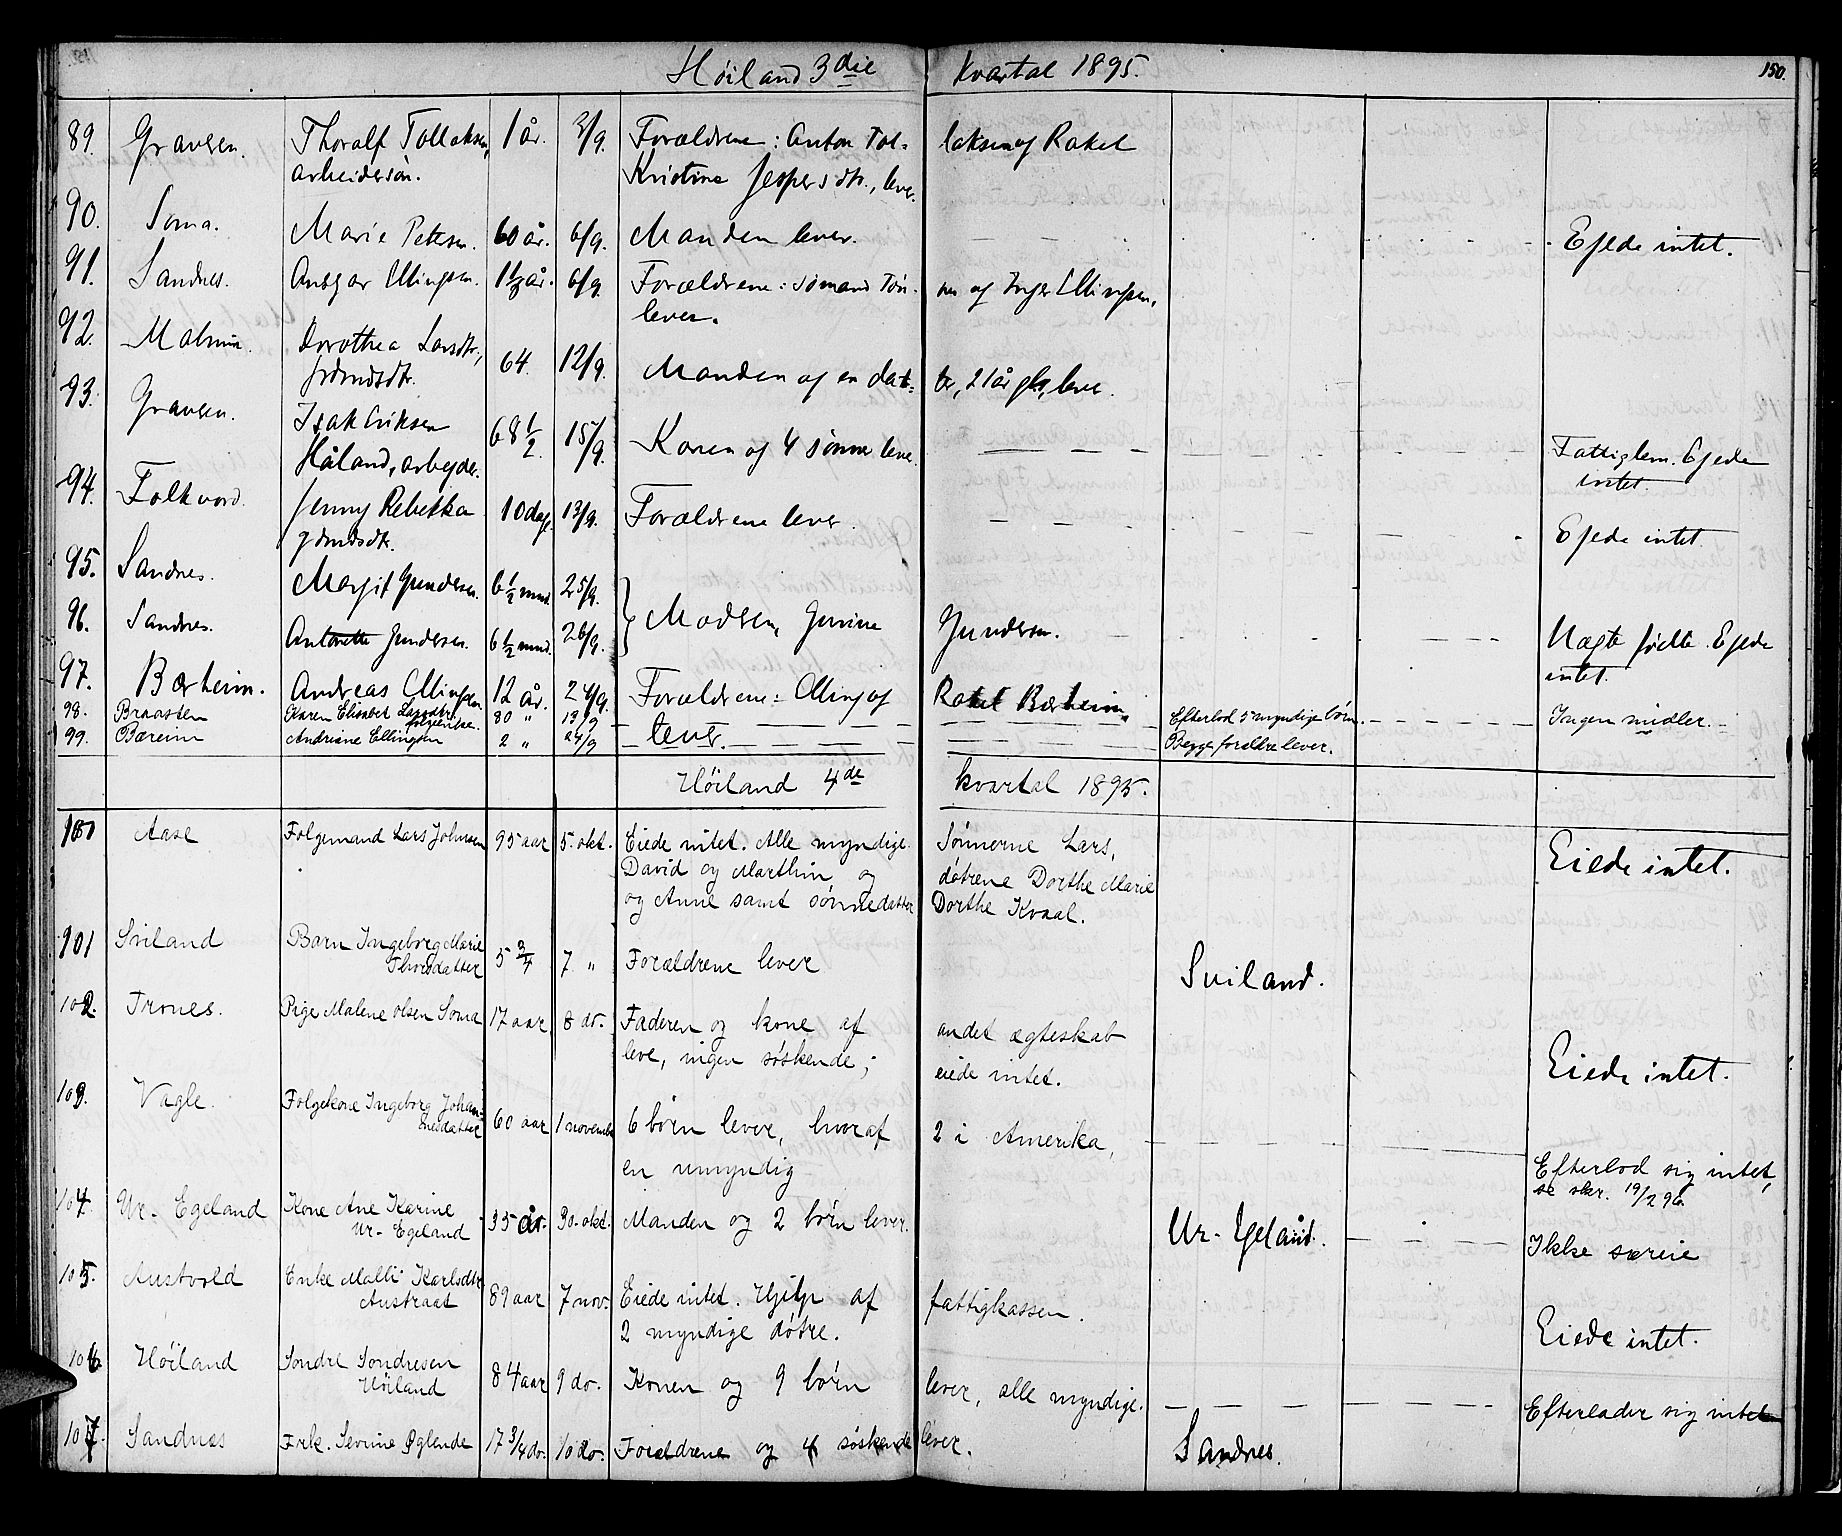 Høiland 3die Kvartal 1895. 150.
89. Gravsen. Thoralf Tollaksen, 1 år. 2/9. Forældrene: Anton Tol= laksen og Rakel
arbeidersøn. Kristine Jespersdtr., lever.
90. Soma. Marie Petersen. 60 år. 6/9. Manden lever. Ejede intet.
91. Sandnes. Ansgar Ellingsen. 6/9. Forældrene: Sømand Tøn- nes og Inger Ellingsen,
lever.
92. Malmin. Dorothea Larsdtr., 64. 12/9. Manden og en dat= ter, 21 år gl., lever.
93. Gravsen. Isak Eriksen 68 1/2. 15/9. Konen og 4 sønner lever. Fattiglem. Ejede
Håland, arbejder. intet.
94. Folkvord. Jenny Rebekka 10 dage 13/9. Forældrene lever. Ejede intet.
95. Sandnes. Margit Gundersen. 6 1/2 mnd. 25/9.
96. Sandnes. Antonette Gundersen. 6 1/2 mnd. 26/9. } Moderen, Gurine Gundersen. Uægte fødte. Ejede
intet.
97. Bærheim. Andreas Ellingsen 12 år. 24/9. Forældrene: Elling og Rakel Bærheim,
98. Braasten Karen Elisabet Larsdtr. 80 " 13/9 Efterlod 5 myndige børn. Ingen midler.
99. Bæreim Andriane Ellingsen 2 " 24/9 lever. Begge foreldre lever.
Høiland 4de kvartal 1895.
100 Aase Følgemand Lars Johnsen 95 aar 5. okt. Eiede intet. Alle myndige. Sønnerne Lars,
David og Marthin og døtrene Dorthe Marie Eiede intet.
og Anne samt sønnedatter Dorthe Kvaal.
101 Sviland Barn Ingeborg Marie 5 3/4 7. " Forældrene lever Sviland.
Thoredatter
102. Trones. Pige Malene Olsen Soma 17 aar 8 do. Faderen og kone af andet ægteskab
leve, ingen søskende; eiede intet. Eiede intet.
103. Vagle. Følgekone Ingeborg Johan- 60 aar 1 november 6 børn lever, hvoraf 2 i Amerika,
nesdatter en umyndig Efterlod sig intet,
se skr. 19/2 96.
104. Ur-Egeland Kone Ane Karine 35 år. 30. okt. Manden og 2 børn lever. Ur-Egeland. Ikke særeie
Ur-Egeland
105. Austvold Enke Malli Karlsdtr. 89 aar 7 nov. Eiede intet. Hjelp af fattigkassen.
Austraat 2 myndige døtre. Eiede intet.
106. Høiland Søndre Søndresen 84 aar 9 do. Konen og 9 børn lever, alle myndige. Efterlader sig intet
Høiland
107. Sandnes Frk. Serine Øglende 17 3/4 do. 10 do. Forældrene og 4 søskende lever. Sandnes.